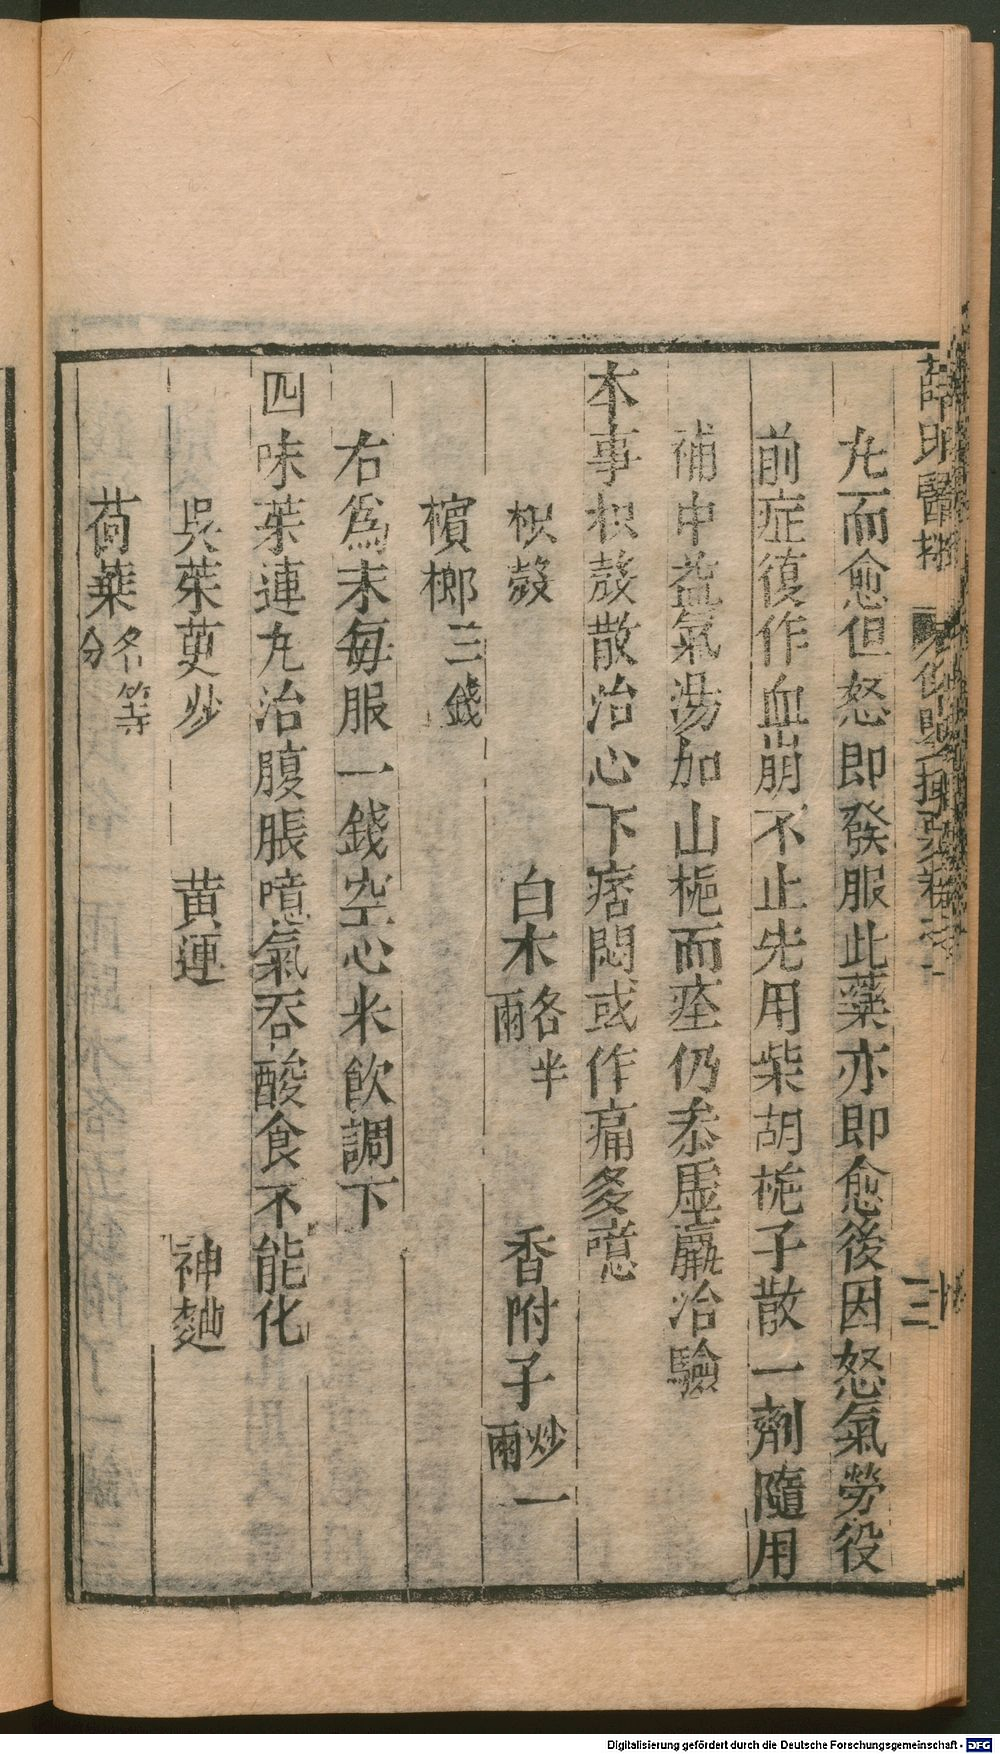 薛氏醫按
三十
丸而愈但怒即發服此藥亦即愈後因怒氣勞役
前症復作血崩不止先用柴胡梔子散一劑隨用
補中益氣湯加山梔而痊仍叅虛羸治驗
本事枳殼散治心下痞悶或作痛多噫
枳殼 白木各半兩 香附子炒一兩
檳榔三錢
右爲末每服一錢空心米飲調下
四味茱連丸治腹脹噫氣吞酸食不能化
吳茱萸炒 黄連 神麯
荷葉各等分
Digitalisierung gefördert durch die Deutsche Forschungsgemeinschaft - DFG